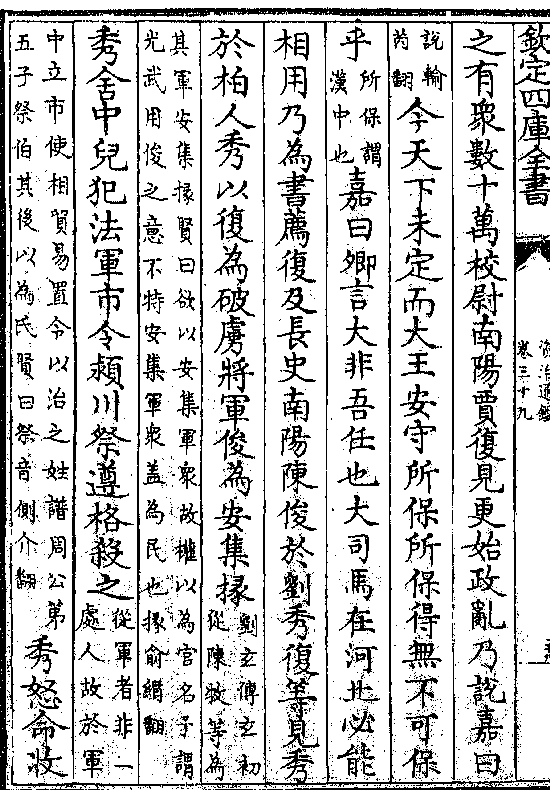 欽定四庫全書
資治通鑑
卷三十九
之有衆數十萬校尉南陽賈復見更始政亂乃說嘉曰
說輸
芮翻
今天下未定而大王安守所保所保得無不可保
乎
所保謂
漢中也
嘉曰卿言大非吾任也大司馬在河北必能
相用乃為書薦復及長史南陽陳俊於劉秀復等見秀
於柏人秀以復為破虜將軍俊為安集掾
劉玄傳玄初
從陳牧等為
其軍安集掾賢曰欲以安集軍衆故權以為官名予謂
光武用俊之意不特安集軍衆盖為民也掾俞絹翻
秀舍中兒犯法軍市令潁川祭遵格殺之
從軍者非一
處人故於軍
中立市使相貿易置令以治之姓譜周公第
五子祭伯其後以為氏賢曰祭音側介翻
秀怒命收